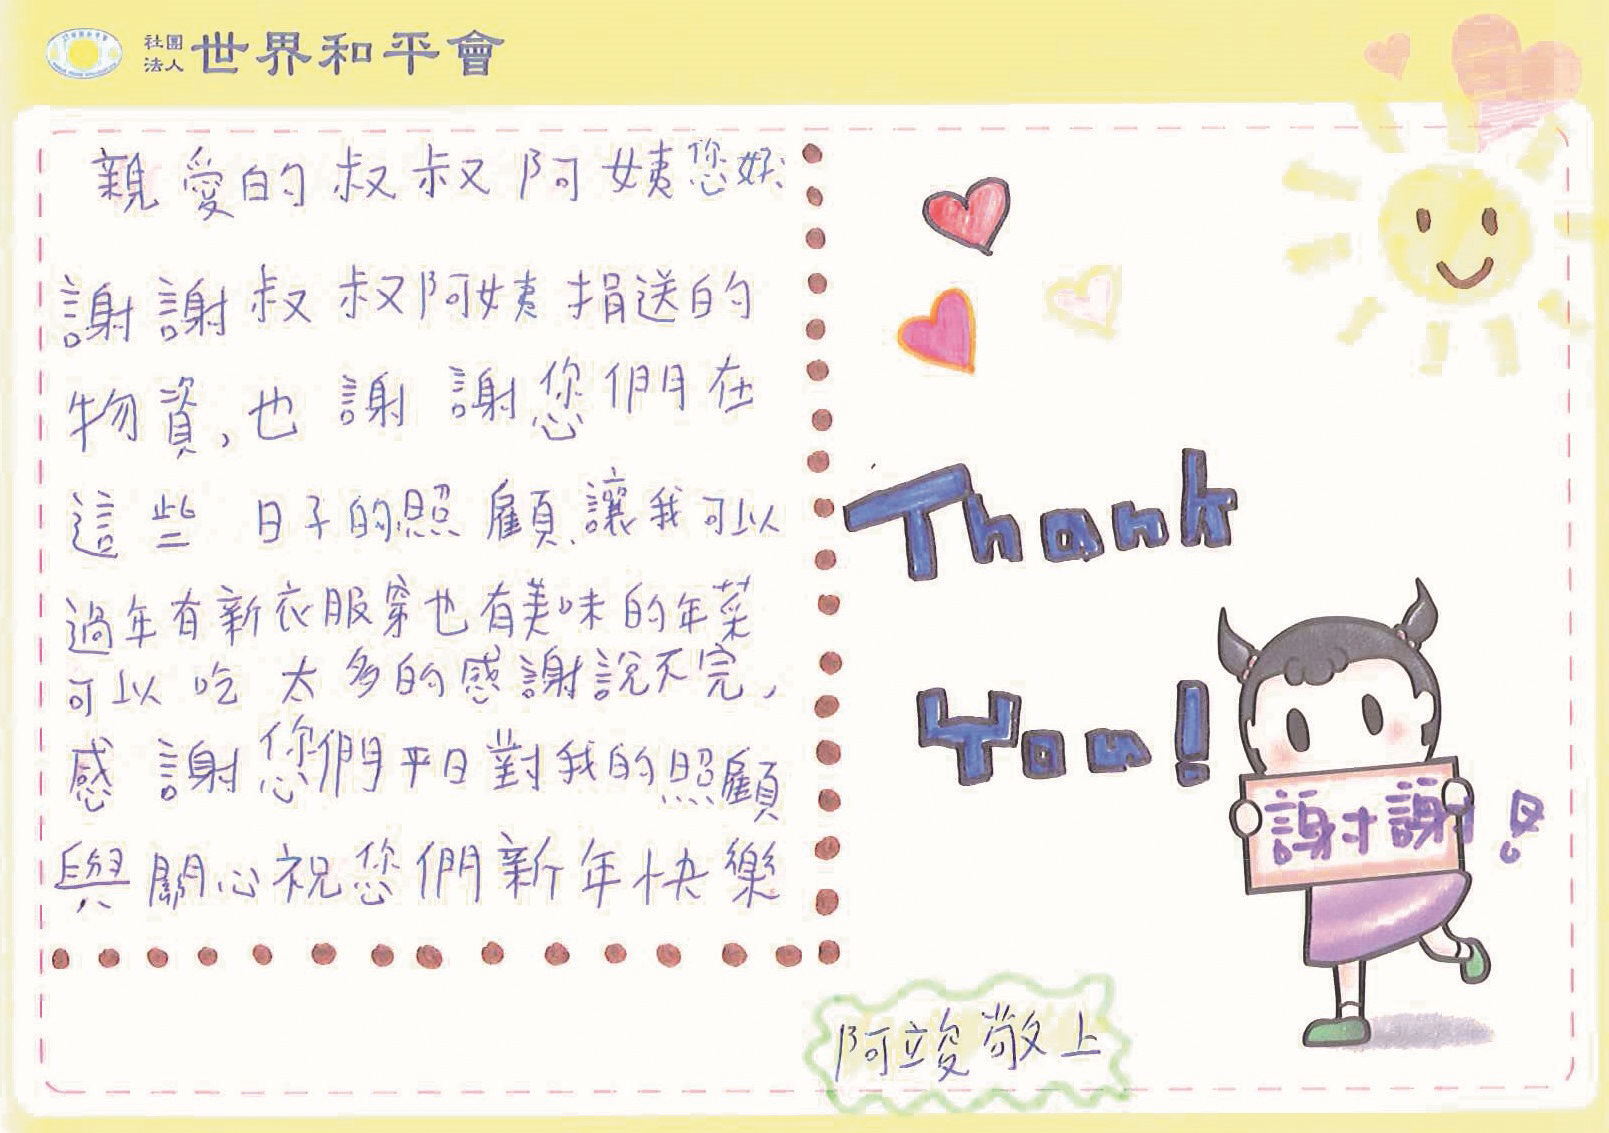 社團
法人
世界和平會
親愛的叔叔阿姨您好:
謝謝叔叔阿姨捐送的
物資,也謝謝您們在
這些日子的照顧,讓我可以
過年有新衣服穿也有美味的年菜
可以吃 太多的感謝說不完,
感謝您們平日對我的照顧
與關心祝您們新年快樂
Thank
You!
謝謝!
阿竣敬上